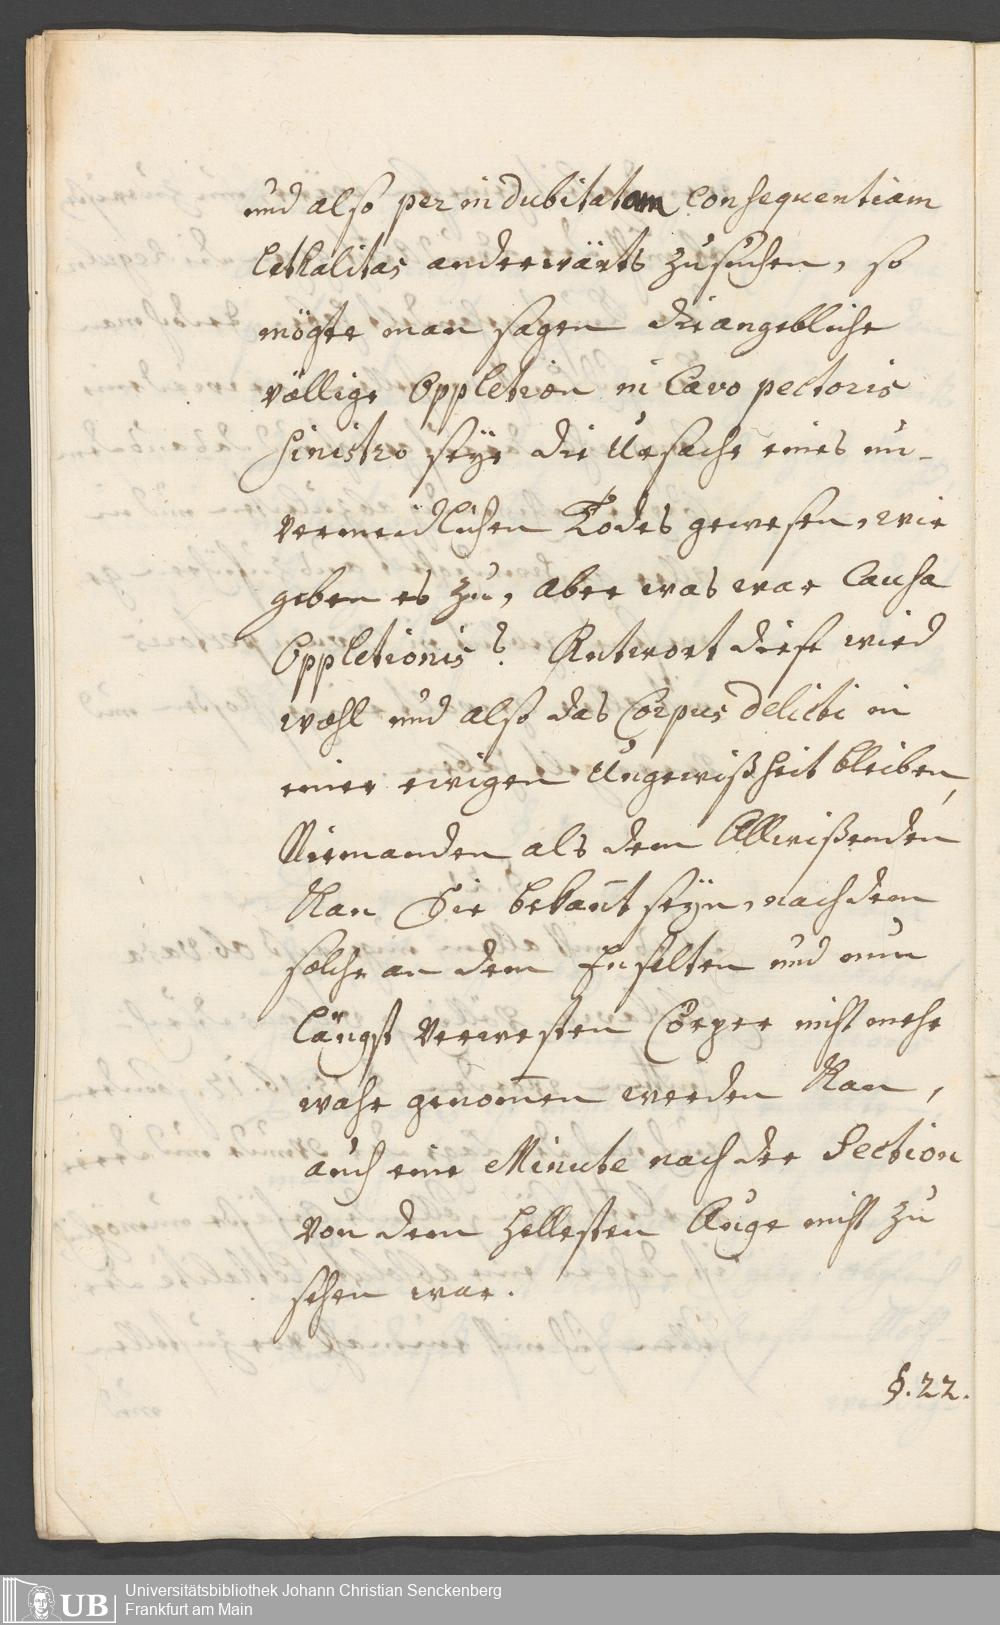 und also per indubitatam Consequentiam
Lethalitas anderwärts zu suchen, so
mögte man sagen die angebliche
völlige Oppletion in Cavo pectoris
sinistro seye die Ursache eines un-
vermeidlichen Todes gewesen, wir
geben es zu, aber was war Causa
Oppletionis? Antwort diese wird
wohl und also das Corpus delicti in
einer ewigen Ungewißheit bleiben,
Niemanden als dem Allwißenden
Kan Sie bekan̄t seyn, nachdem
solche an dem Entseelten und nun
längst verwesten Cörper nicht mehr
wahr genom̄en werden Kan,
auch eine Minute nach der Section
von dem hellesten Auge nicht zu
sehen war.
§. 22.
UB
Universitätsbibliothek Johann Christian Senckenberg
Frankfurt am Main